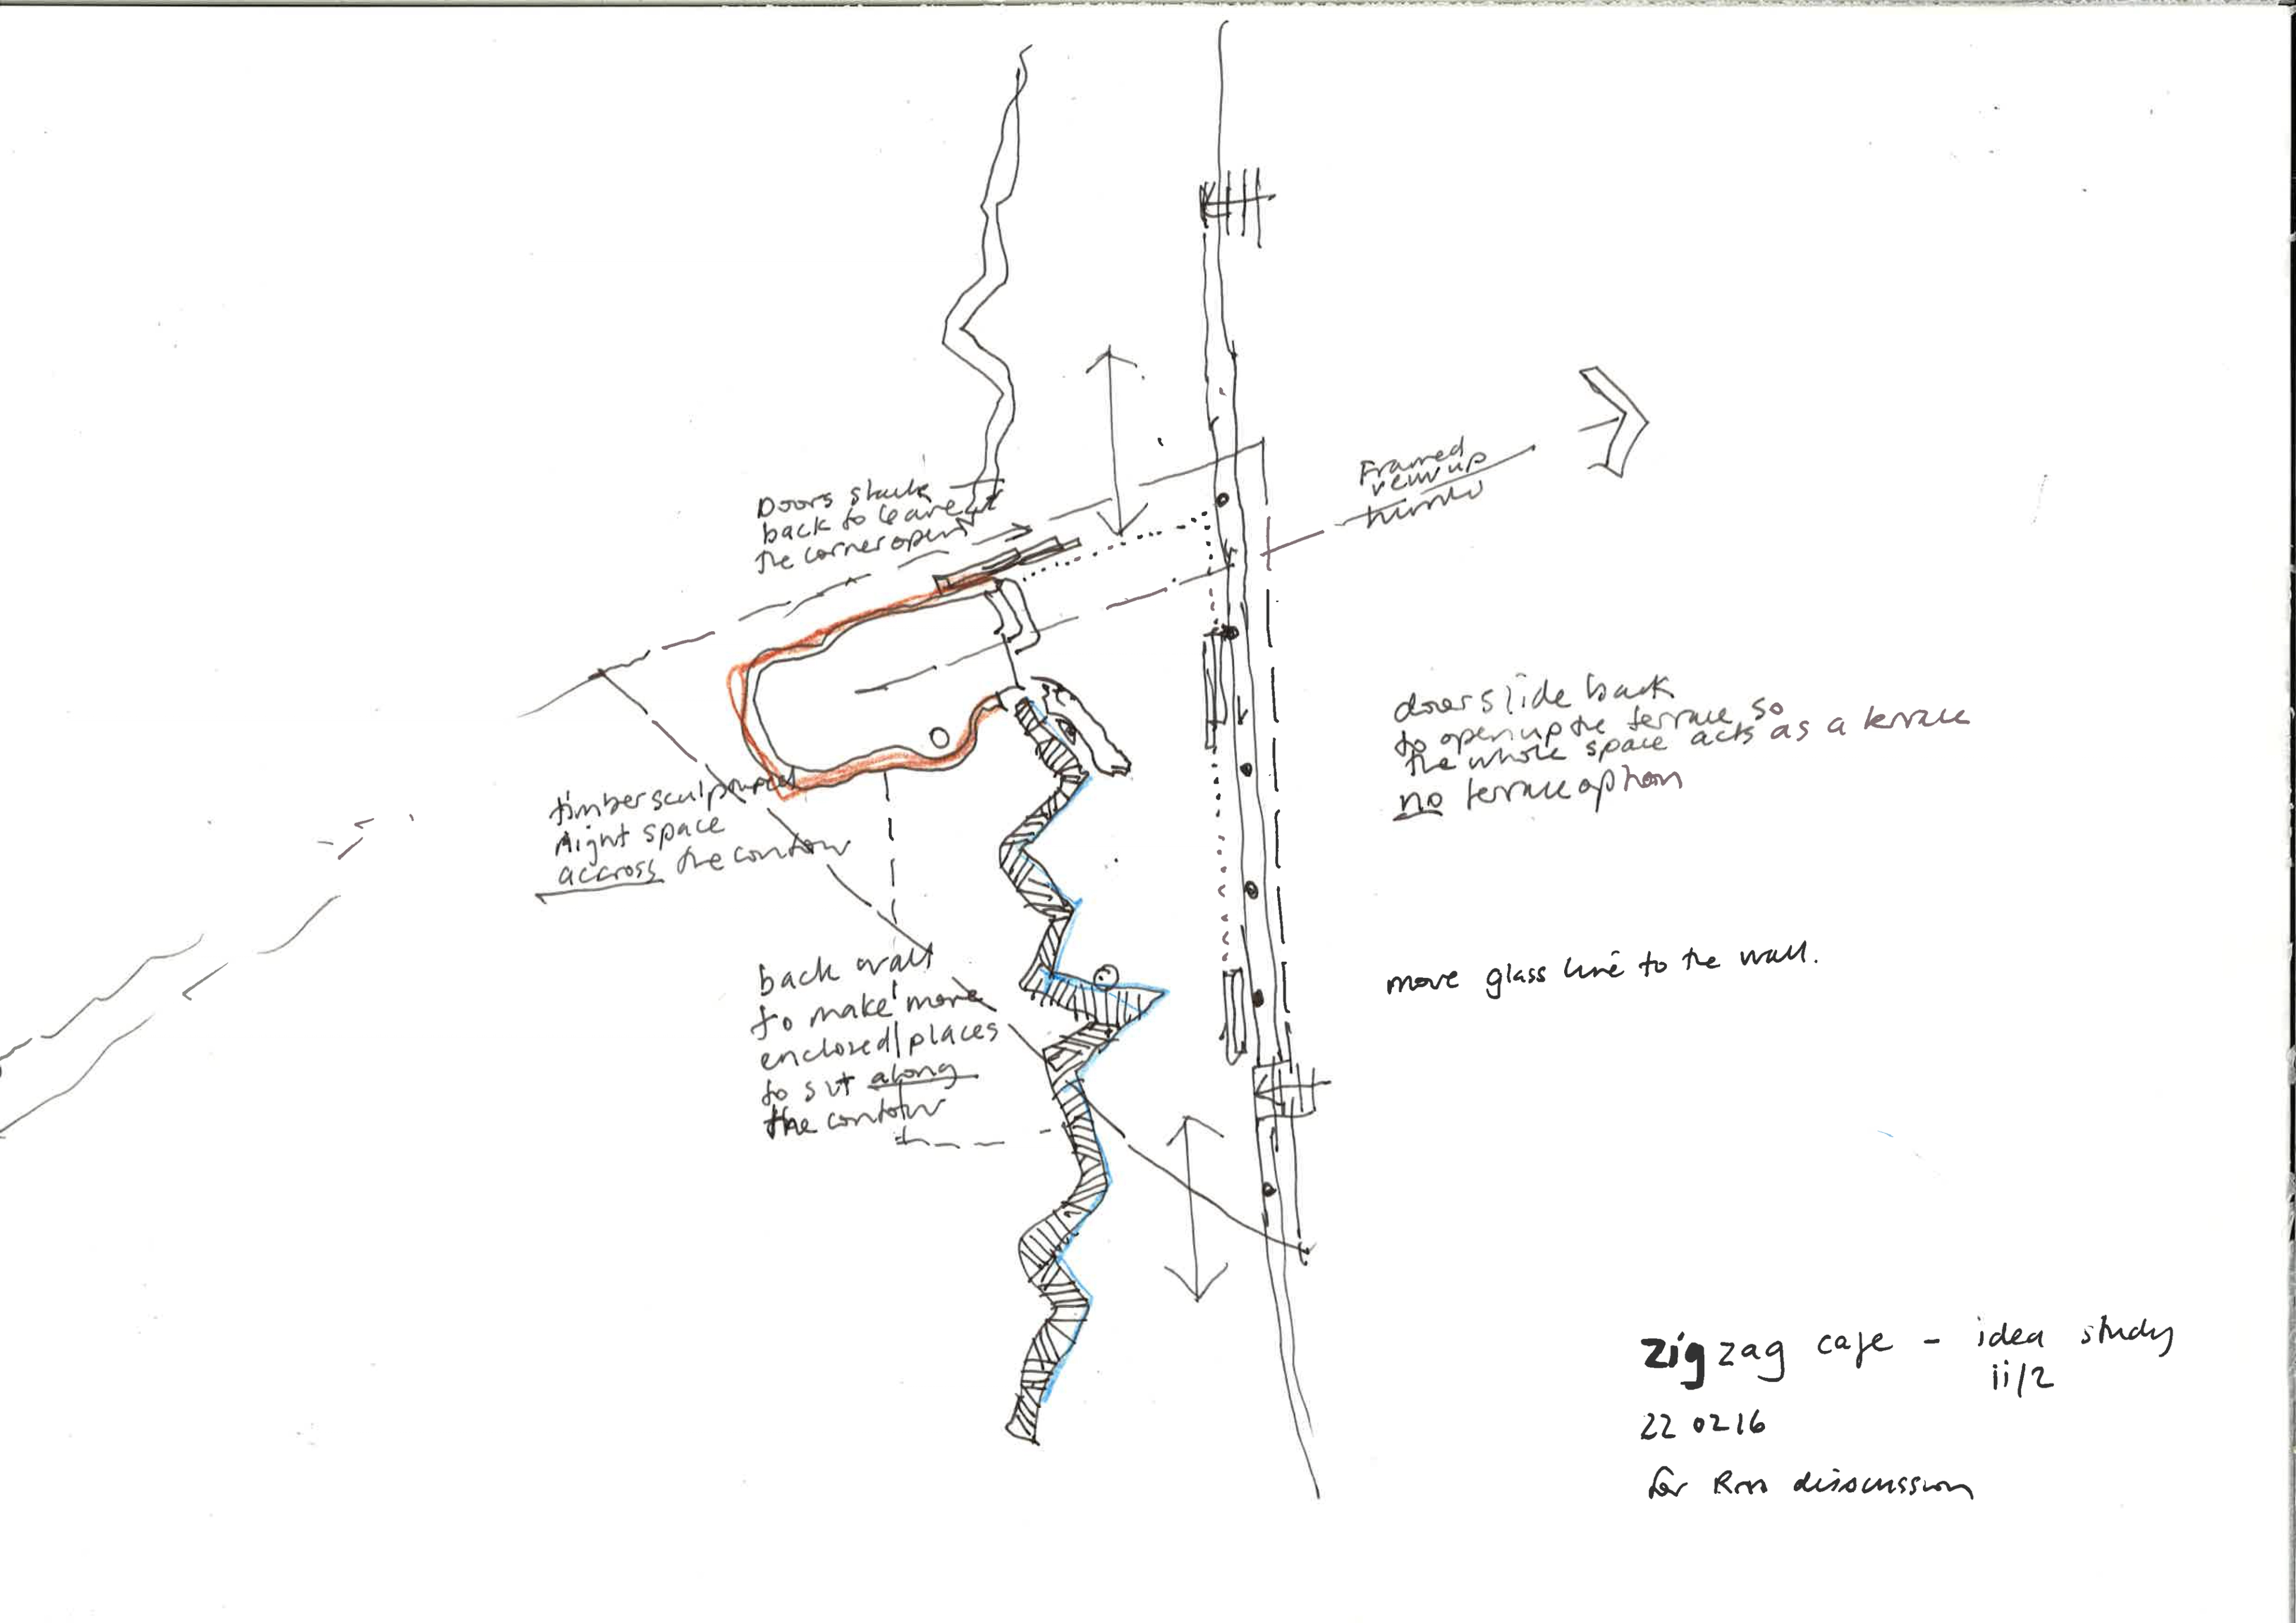 Doors stack
back to leave
the corner open
Framed
view up
timber sculptured
night space
accross the contour
back wall
to make more
enclosed places
to sit along
the contour
doors slide back
to open up the terrace so
the whole space acts as a terrace
no terrace option
move glass line to the wall.
zigzag cafe - idea study
ii/2
22 02 16
for discussion